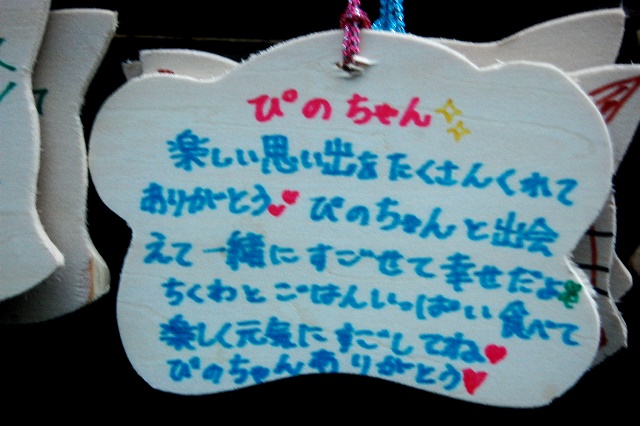 ぴのちゃん
楽しい思い出をたくさんくれて
ありがとう ぴのちゃんと出会
えて一緒にすごせて幸せだよ
ちくわとごはんいっぱい食べて
楽しく元気にすごしてね
ぴのちゃんありがとう